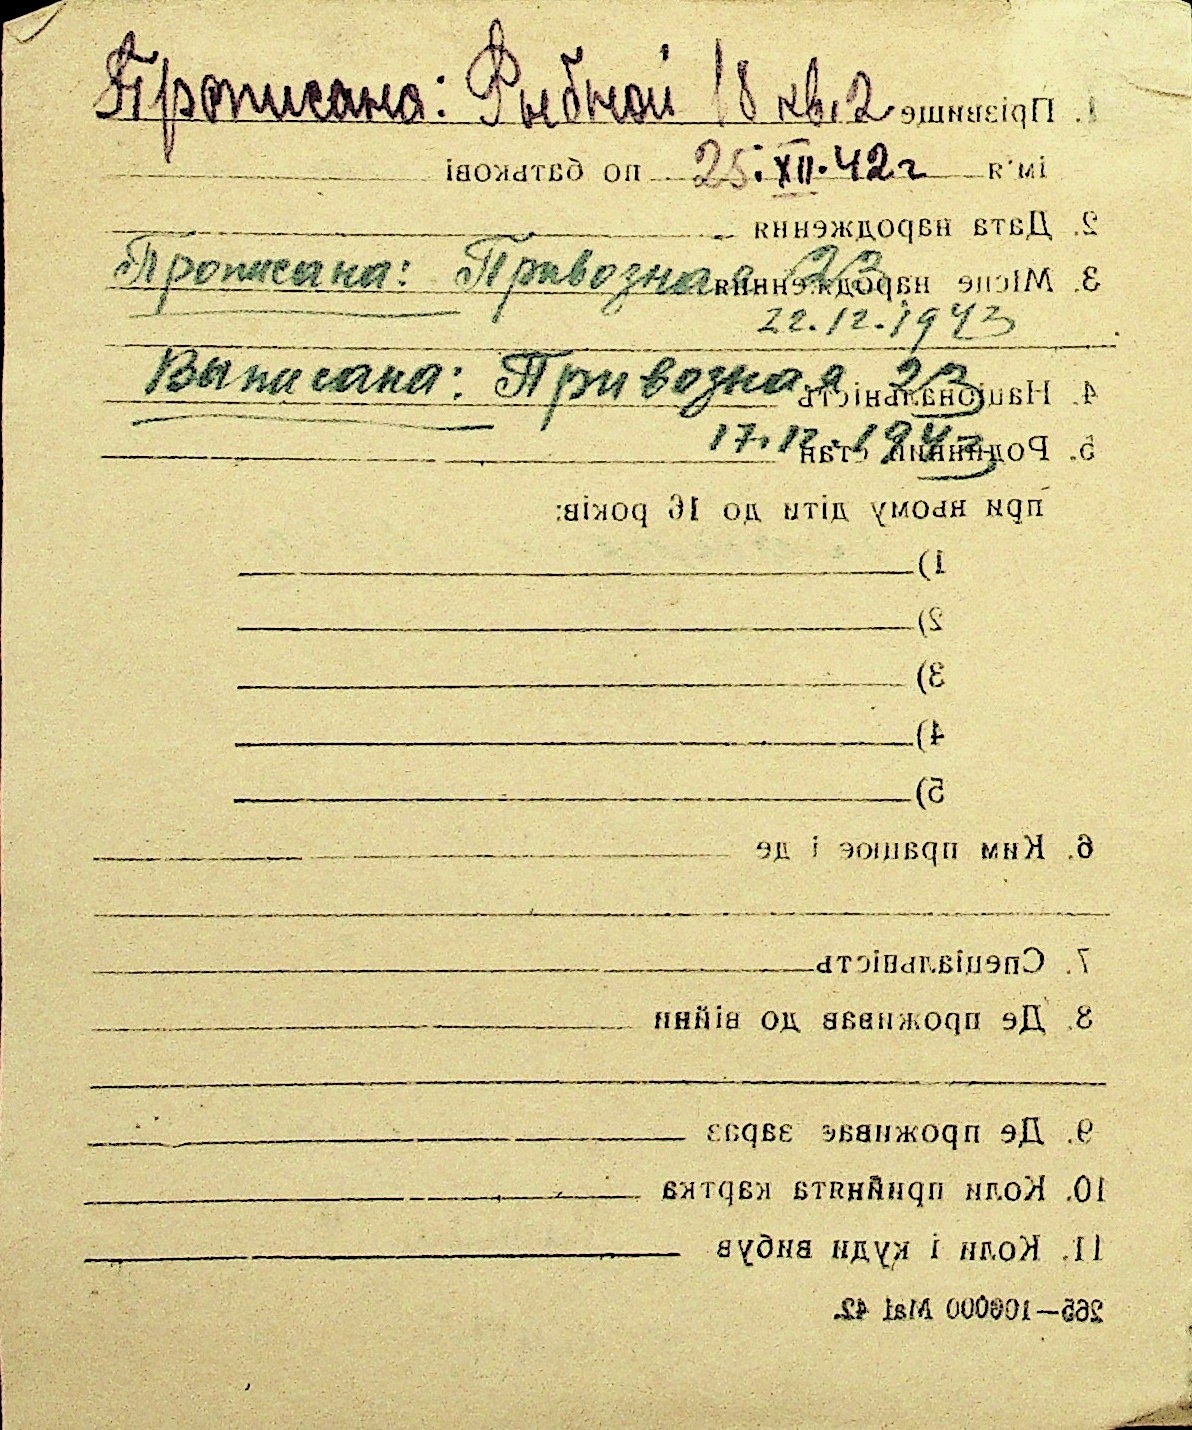 Прописана: Рыбной 18 кв. 2
1. Прізвище
25. XII. 42 г
ім'я по батькові
2. Дата народження
Прописана: Привозная 23
3. Місце народження
22.12.1943
Выписана: Привозная 23
4. Національність
17.12.1943
5. Родинний стан
при ньому діти до 16 років:
1)
2)
3)
4)
5)
6. Ким працює і де
7. Спеціальність
8. Де проживав до війни
9. Де проживає зараз
10. Коли прийнята картка
11. Коли і куди вибув
265—100000 Mai 42.